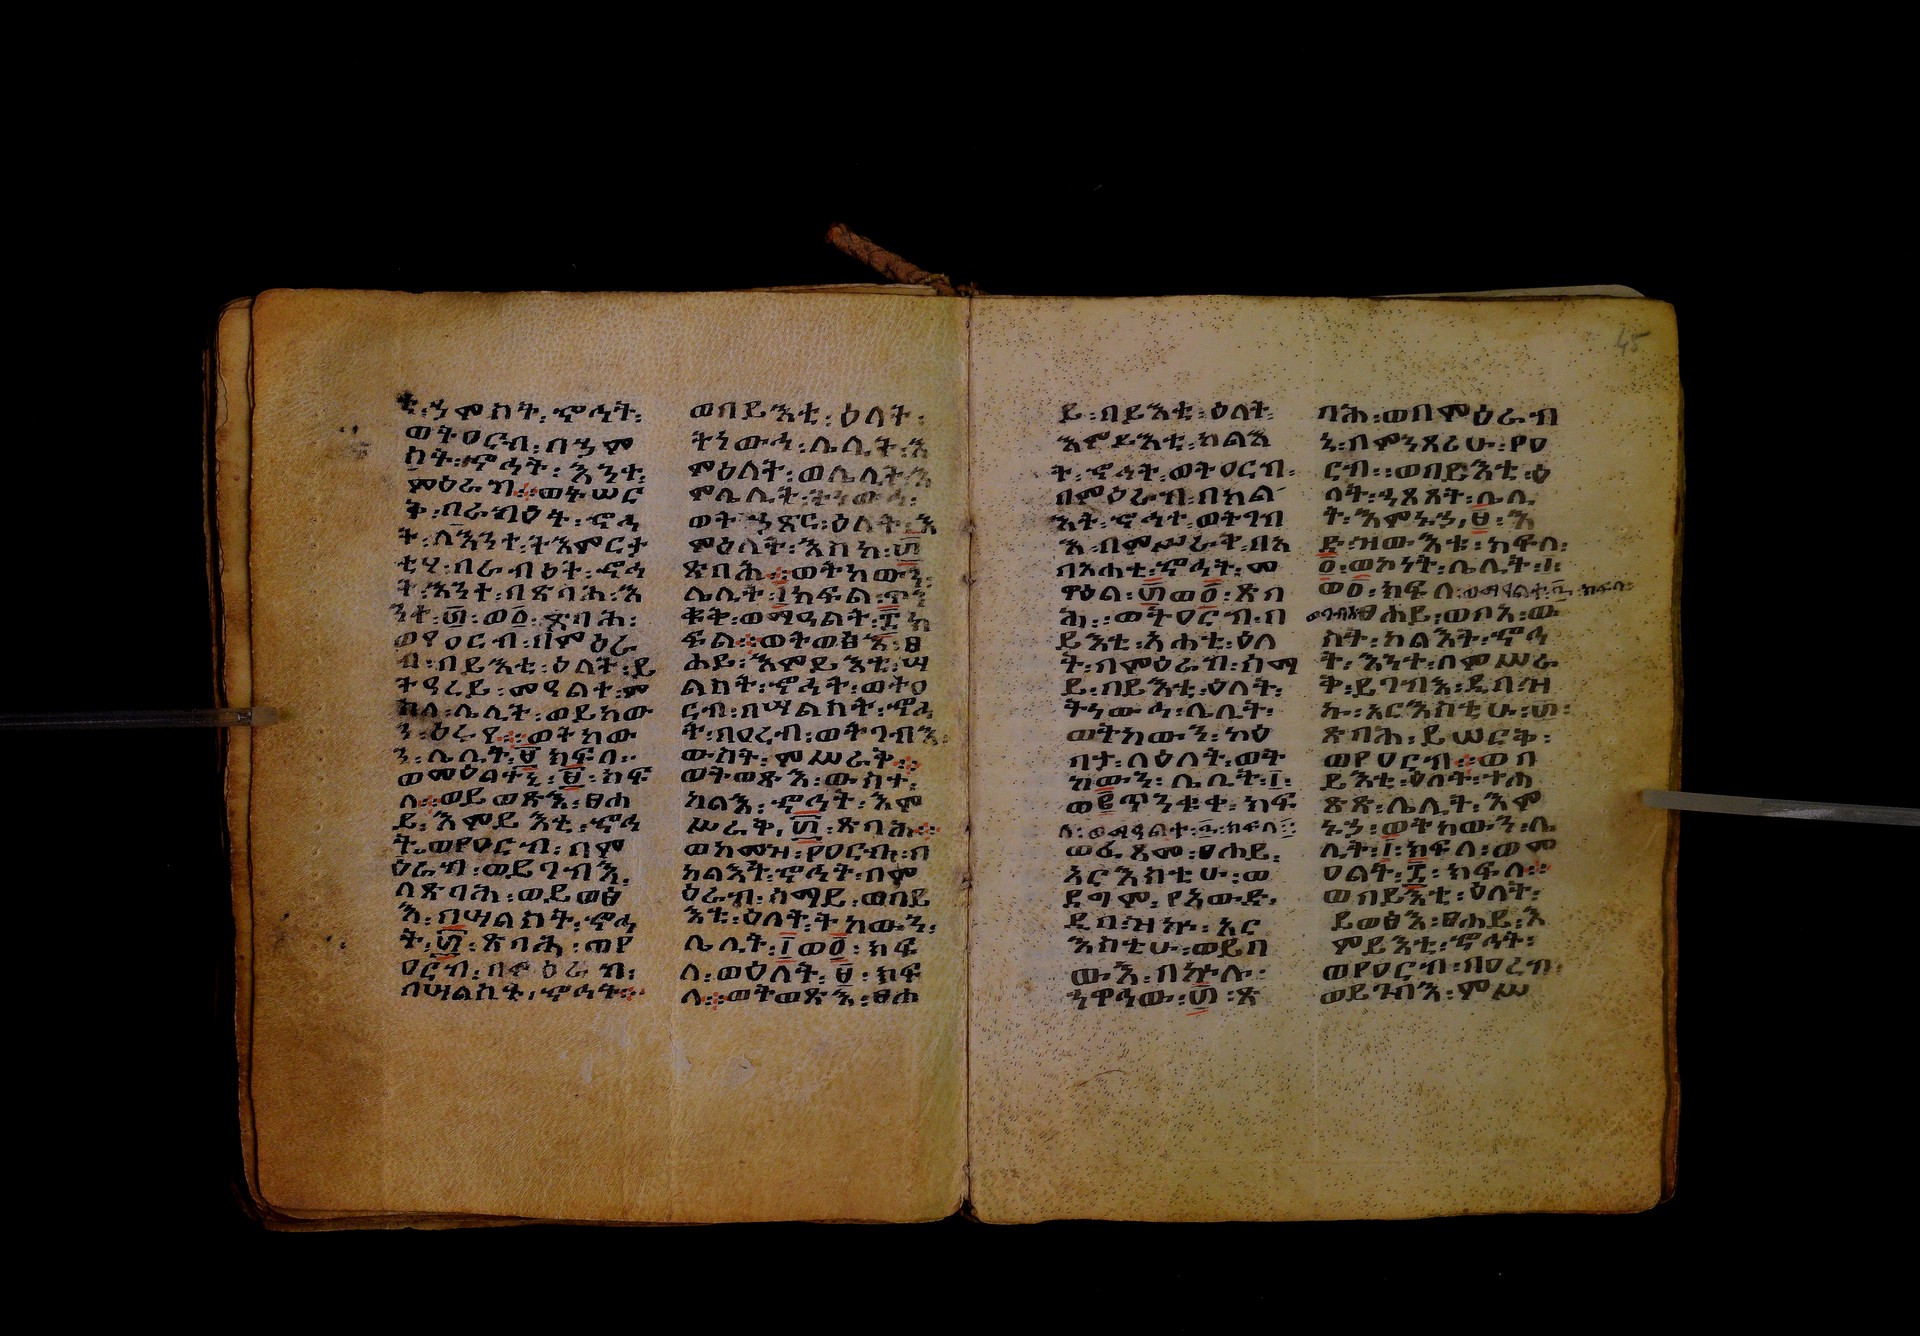 ት፡ኃምስት፡ኆኅት፡
ወትዐርብ፡በኃም
ስት፡ኆኅት፡እንተ፡
ምዕራብ፡፡ወትሠር
ቅ፡በራብዕት፡ኆኅ
ት፡ሰእንተ፡ትእምርታ
ቲሃ፡በራብዕት፡ኆኅ
ት፡እንተ፡በጽባሕ፡እ
ንተ፡፴፡ወ፩፡ጽባሕ፡
ወየዐርብ፡በምዕራ
ብ፡በይእቲ፡ዕለት፡ይ
ትዓረይ፡መዓልተ፡ም
ስለ፡ሌሊት፡ወይከው
ን፡ዕሩየ፡፡ወትከው
ን፡ሌሊት፡፱ክፍለ፡
ወመዕልትኒ፡፱፡ክፍ
ለ፡ወይወጽእ፡ፀሐ
ይ፡እምይእቲ፡ኆኅ
ት፡ወየዐርብ፡በም
ዕራብ፡ወይገብእ፡
ለጽባሕ፡ወይወፅ
እ፡በሣልስት፡ኆኅ
ት፡፴፡ጽባሕ፡ወየ
ዐርብ፡በምዕራብ፡
በሣልስት፡ኆኅት፡፡
ወበይእቲ፡ዕለት፡
ትነውኅ፡ሌሊት፡እ
ምዕለት፡ወሌሊት፡እ
ምሌሊት፡ትነውኅ፡
ወትኃጽር፡ዕለት፡እ
ምዕለት፡እስከ፡፴
ጽባሕ፡፡ወትከውን፡
ሌሊት፡፲ክፍል፡ጥን
ቁቀ፡ወማዓልት፡፰ክ
ፍል፡፡ወትወፅእ፡ፀ
ሐይ፡እምይእቲ፡ሣ
ልስት፡ኆኅት፡ወትዐ
ርብ፡በሣልስት፡ኆኅ
ት፡በዐረብ፡ወትገብእ፡
ውስት፡ምሥራቅ፡፡
ወትወጽእ፡ውስተ፡
ካልእ፡ኆኅት፡እም
ሥራቅ፡፴፡ጽባሕ፡፡
ወከመዝ፡የዐርብ፡በ
ካልእት፡ኆኅት፡በም
ዕራብ፡ሰማይ፡ወበይ
እቲ፡ዕለት፡ትከውን፡
ሌሊት፡፲ወ፩፡ክፍ
ለ፡ወዕለት፡፱፡ክፍ
ለ፡፡ወትወጽእ፡ፀሐ
ይ፡በይእቲ፡ዕለት፡
እምይእቲ፡ካልእ
ት፡ኆኅት፡ወትዐርብ፡
በምዕራብ፡በካል
እት፡ኆኅተ፡ወትገብ
እ፡በምሥራቅ፡በአ
ባአሐቲ፡ኆኅት፡መ
ዋዕል፡፴ወ፩፡ጽባ
ሕ፡፡ወትዐርብ፡በ
ይእቲ፡አሐቲ፡ዕለ
ት፡በምዕራብ፡ሰማ
ይ፡በይእቲ፡ዕለት፡
ትነውኅ፡ሌሊት፡
ወትከውን፡ካዕ
በታ፡ለዕለት፡ወት
ከውን፡ሌሊት፡፲፡
ወ፪ጥንቁቀ፡ክፍ
ለ፡ወማዓልተ፡፮፡ክፍለ፡፡
ወፈጸመ፡ፀሐይ፡
አርእስቲሁ፡ወ
ደግም፡የአውድ፡
ዲበ፡ዝኩ፡አር
እስቲሁ፡ወይበ
ውእ፡በኵሉ፡
ኆኅው፡፴፡ጽ
ባሕ፡ወበምዕራብ
ኒ፡በምንጻሪሁ፡የዐ
ርብ፡፡ወበይእቲ፡ዕ
ለት፡ኃጸጸት፡ሌሊ
ት፡እምኑኃ፡፱፡እ
ዴ፡ዝውእቱ፡ክፍለ፡
፩፡ወኮነት፡ሌሊት፡፲፡
ወ፩፡ክፍለ፡ወማዓልት፡፯፡ክፍለ፡
ፀሐይ፡ወቦአ፡ው
ስት፡ካልእት፡ኆኅ
ት፡እንተ፡በምሥራ
ቅ፡ይገብእ፡ዲበ፡ዝ
ኩ፡አርእስቲሁ፡፴፡
ጽባሕ፡ይሠርቅ፡
ወየዐርብ፡፡ወበ
ይእቲ፡ዕለት፡ተሐ
ጽጽ፡ሌሊት፡እም
ኑኃ፡ወትከውን፡ሌ
ሊት፡፲፡ክፍለ፡ወም
ዐልት፡፰፡ክፍለ፡፡
ወበይእቲ፡ዕለት፡
ይወፅእ፡ፀሐይ፡እ
ምይእቲ፡ኆኅት፡
ወየዐርብ፡በዐረብ፡
ወይገብእ፡ምሥ